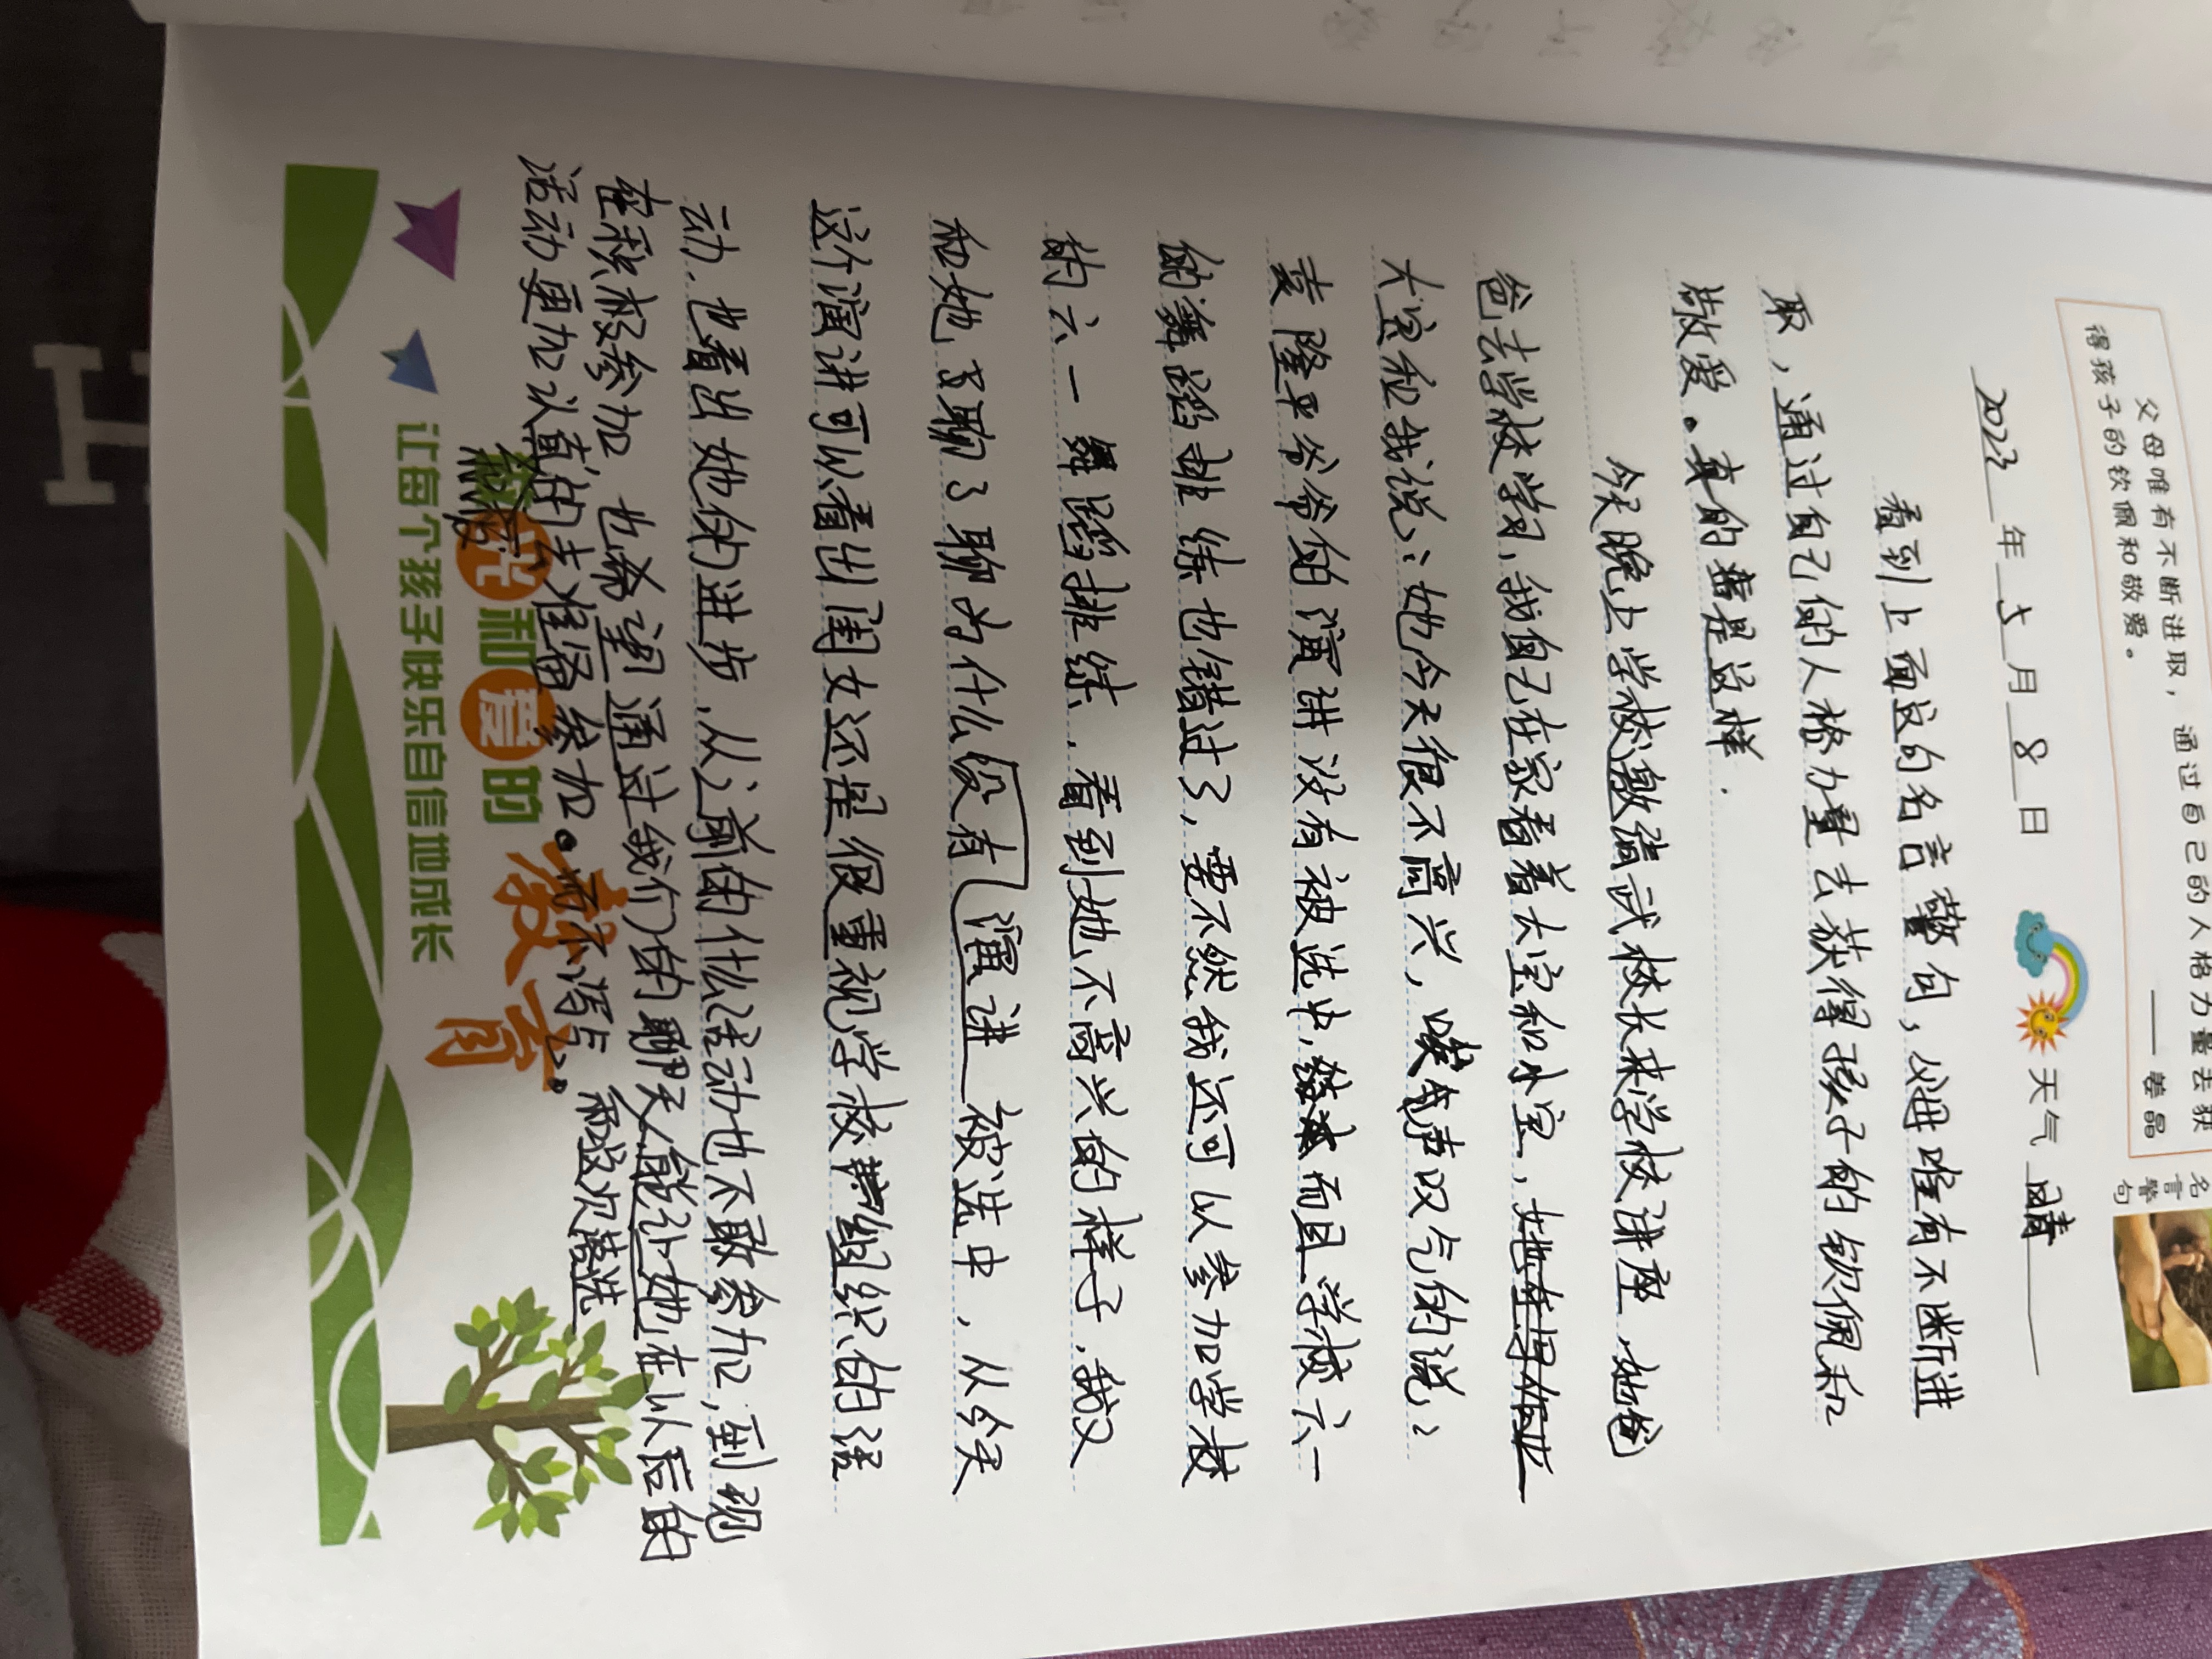 父母唯有不断进取，通过自己的人格力量去获
得孩子的钦佩和敬爱。
——姜晶
名言警句
2023年5月8日 天气 晴
看到上面这的名言警句，父母唯有不断进
取，通过自己的人格力量去获得孩子的钦佩和
敬爱。真的是这样.
今天晚上学校邀请武校长来学校讲座，她爸
爸去学校学习，我自己在家看着大宝和小宝，
大宝和我说：她今天很不高兴，唉声叹气的说：
袁隆平爷爷的演讲没有被选中，而且学校六一
的舞蹈排练也错过了，要不然我还可以参加学校
的六一舞蹈排练，看到她不高兴的样子，我又
和她聊了聊为什么没有演讲被选中，从今天
这个演讲可以看出闺女还是很重视学校组织的活
动，也看出她的进步，从之前的什么活动也不敢参加，到现
在积极参加，也希望通过我们的聊天能让她在以后的
活动更加认真的去准备参加。
而这次落选
光和爱的教育
让每个孩子快乐自信地成长